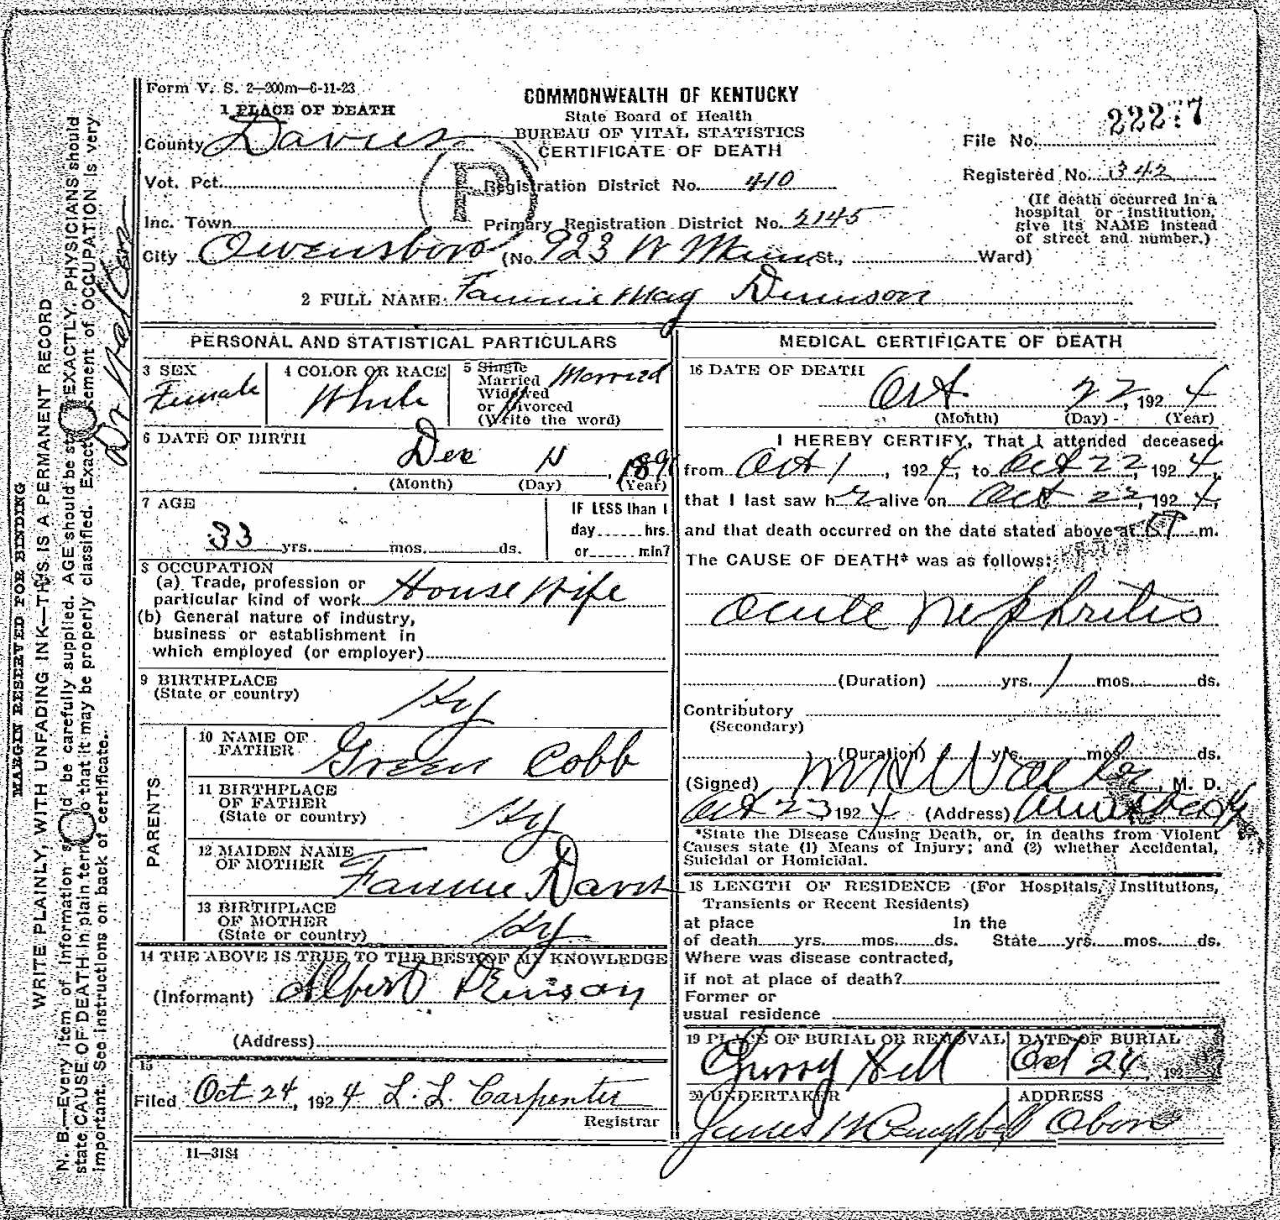 Form V. S. 2—200m—6-11-23
1 PLACE OF DEATH
COMMONWEALTH OF KENTUCKY
State Board of Health
BUREAU OF VITAL STATISTICS
CERTIFICATE OF DEATH
County Daviess
File No. 22277
Vot. Pct.
Registration District No. 410
Registered No. 342
Inc. Town
Primary Registration District No. 2145
(If death occurred in a hospital or institution, give its NAME instead of street and number.)
City Owensboro (No. 923 W Main St., Ward)
2 FULL NAME Fannie May Dennison
PERSONAL AND STATISTICAL PARTICULARS
3 SEX Female
4 COLOR OR RACE White
5 Single Married Widowed or Divorced (Write the word) Married
6 DATE OF BIRTH
Dec 11, 189
(Month) (Day) (Year)
7 AGE
33 yrs. mos. ds.
IF LESS than 1 day hrs. or min?
8 OCCUPATION
(a) Trade, profession or particular kind of work House Wife
(b) General nature of industry, business or establishment in which employed (or employer)
9 BIRTHPLACE
(State or country) Ky
PARENTS
10 NAME OF FATHER Green Cobb
11 BIRTHPLACE OF FATHER
(State or country) Ky
12 MAIDEN NAME OF MOTHER Fannie Davis
13 BIRTHPLACE OF MOTHER
(State or country) Ky
14 THE ABOVE IS TRUE TO THE BEST OF MY KNOWLEDGE
(Informant) Albert Denison
(Address)
15
Filed Oct 24, 1924 L. L. Carpenter
Registrar
11—3184
MEDICAL CERTIFICATE OF DEATH
16 DATE OF DEATH
Oct 22, 1924
(Month) (Day) (Year)
I HEREBY CERTIFY, That I attended deceased
from Oct 1, 1924, to Oct 22, 1924,
that I last saw her alive on Oct 22, 1924,
and that death occurred on the date stated above at m.
The CAUSE OF DEATH* was as follows:
acute nephritis
(Duration) yrs. 1 mos. ds.
Contributory
(Secondary)
(Duration) yrs. mos. ds.
(Signed) M. D.
Oct 23 1924 (Address)
*State the Disease Causing Death, or, in deaths from Violent
Causes state (1) Means of Injury; and (2) whether Accidental,
Suicidal or Homicidal.
18 LENGTH OF RESIDENCE (For Hospitals, Institutions,
Transients or Recent Residents)
at place In the
of death yrs. mos. ds. State yrs. mos. ds.
Where was disease contracted,
if not at place of death?
Former or
usual residence
19 PLACE OF BURIAL OR REMOVAL DATE OF BURIAL
Hill Oct 24, 192
20 UNDERTAKER ADDRESS
James H Campbell Oboro
MARGIN RESERVED FOR BINDING
WRITE PLAINLY, WITH UNFADING INK—THIS IS A PERMANENT RECORD
N. B.—Every item of information should be carefully supplied. AGE should be stated EXACTLY. PHYSICIANS should
state CAUSE OF DEATH in plain terms so that it may be properly classified. Exact statement of OCCUPATION is very
important. See instructions on back of certificate.
P